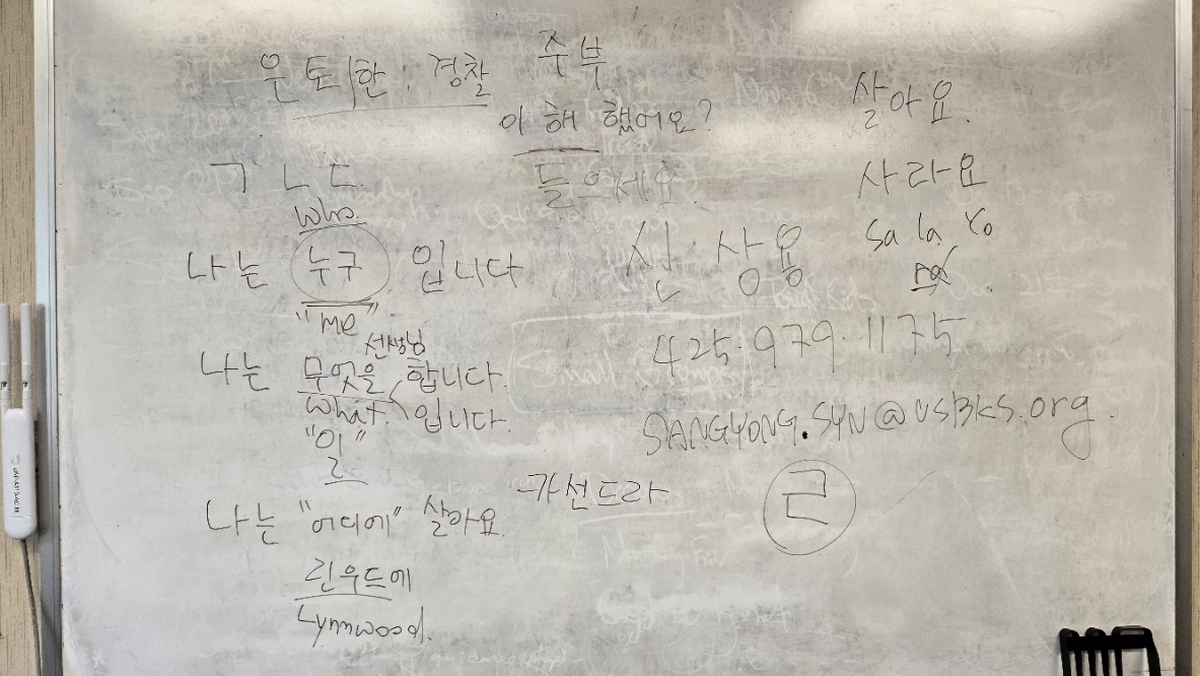 은퇴한 : 경찰 주부
이해 했어요?
살아요.
ㄱ ㄴ ㄷ.
들으세요.
사라요
who.
sa la yo
ra
나는 누구 입니다
신 상용
"me"
425.979.1175
선생님
나는 무엇을 합니다.
what. 입니다.
"일"
SANGYONG.SYN@USBKS.org.
카선드라
ㄹ
나는 "어디에" 살아요.
린우드에
Lynnwood.